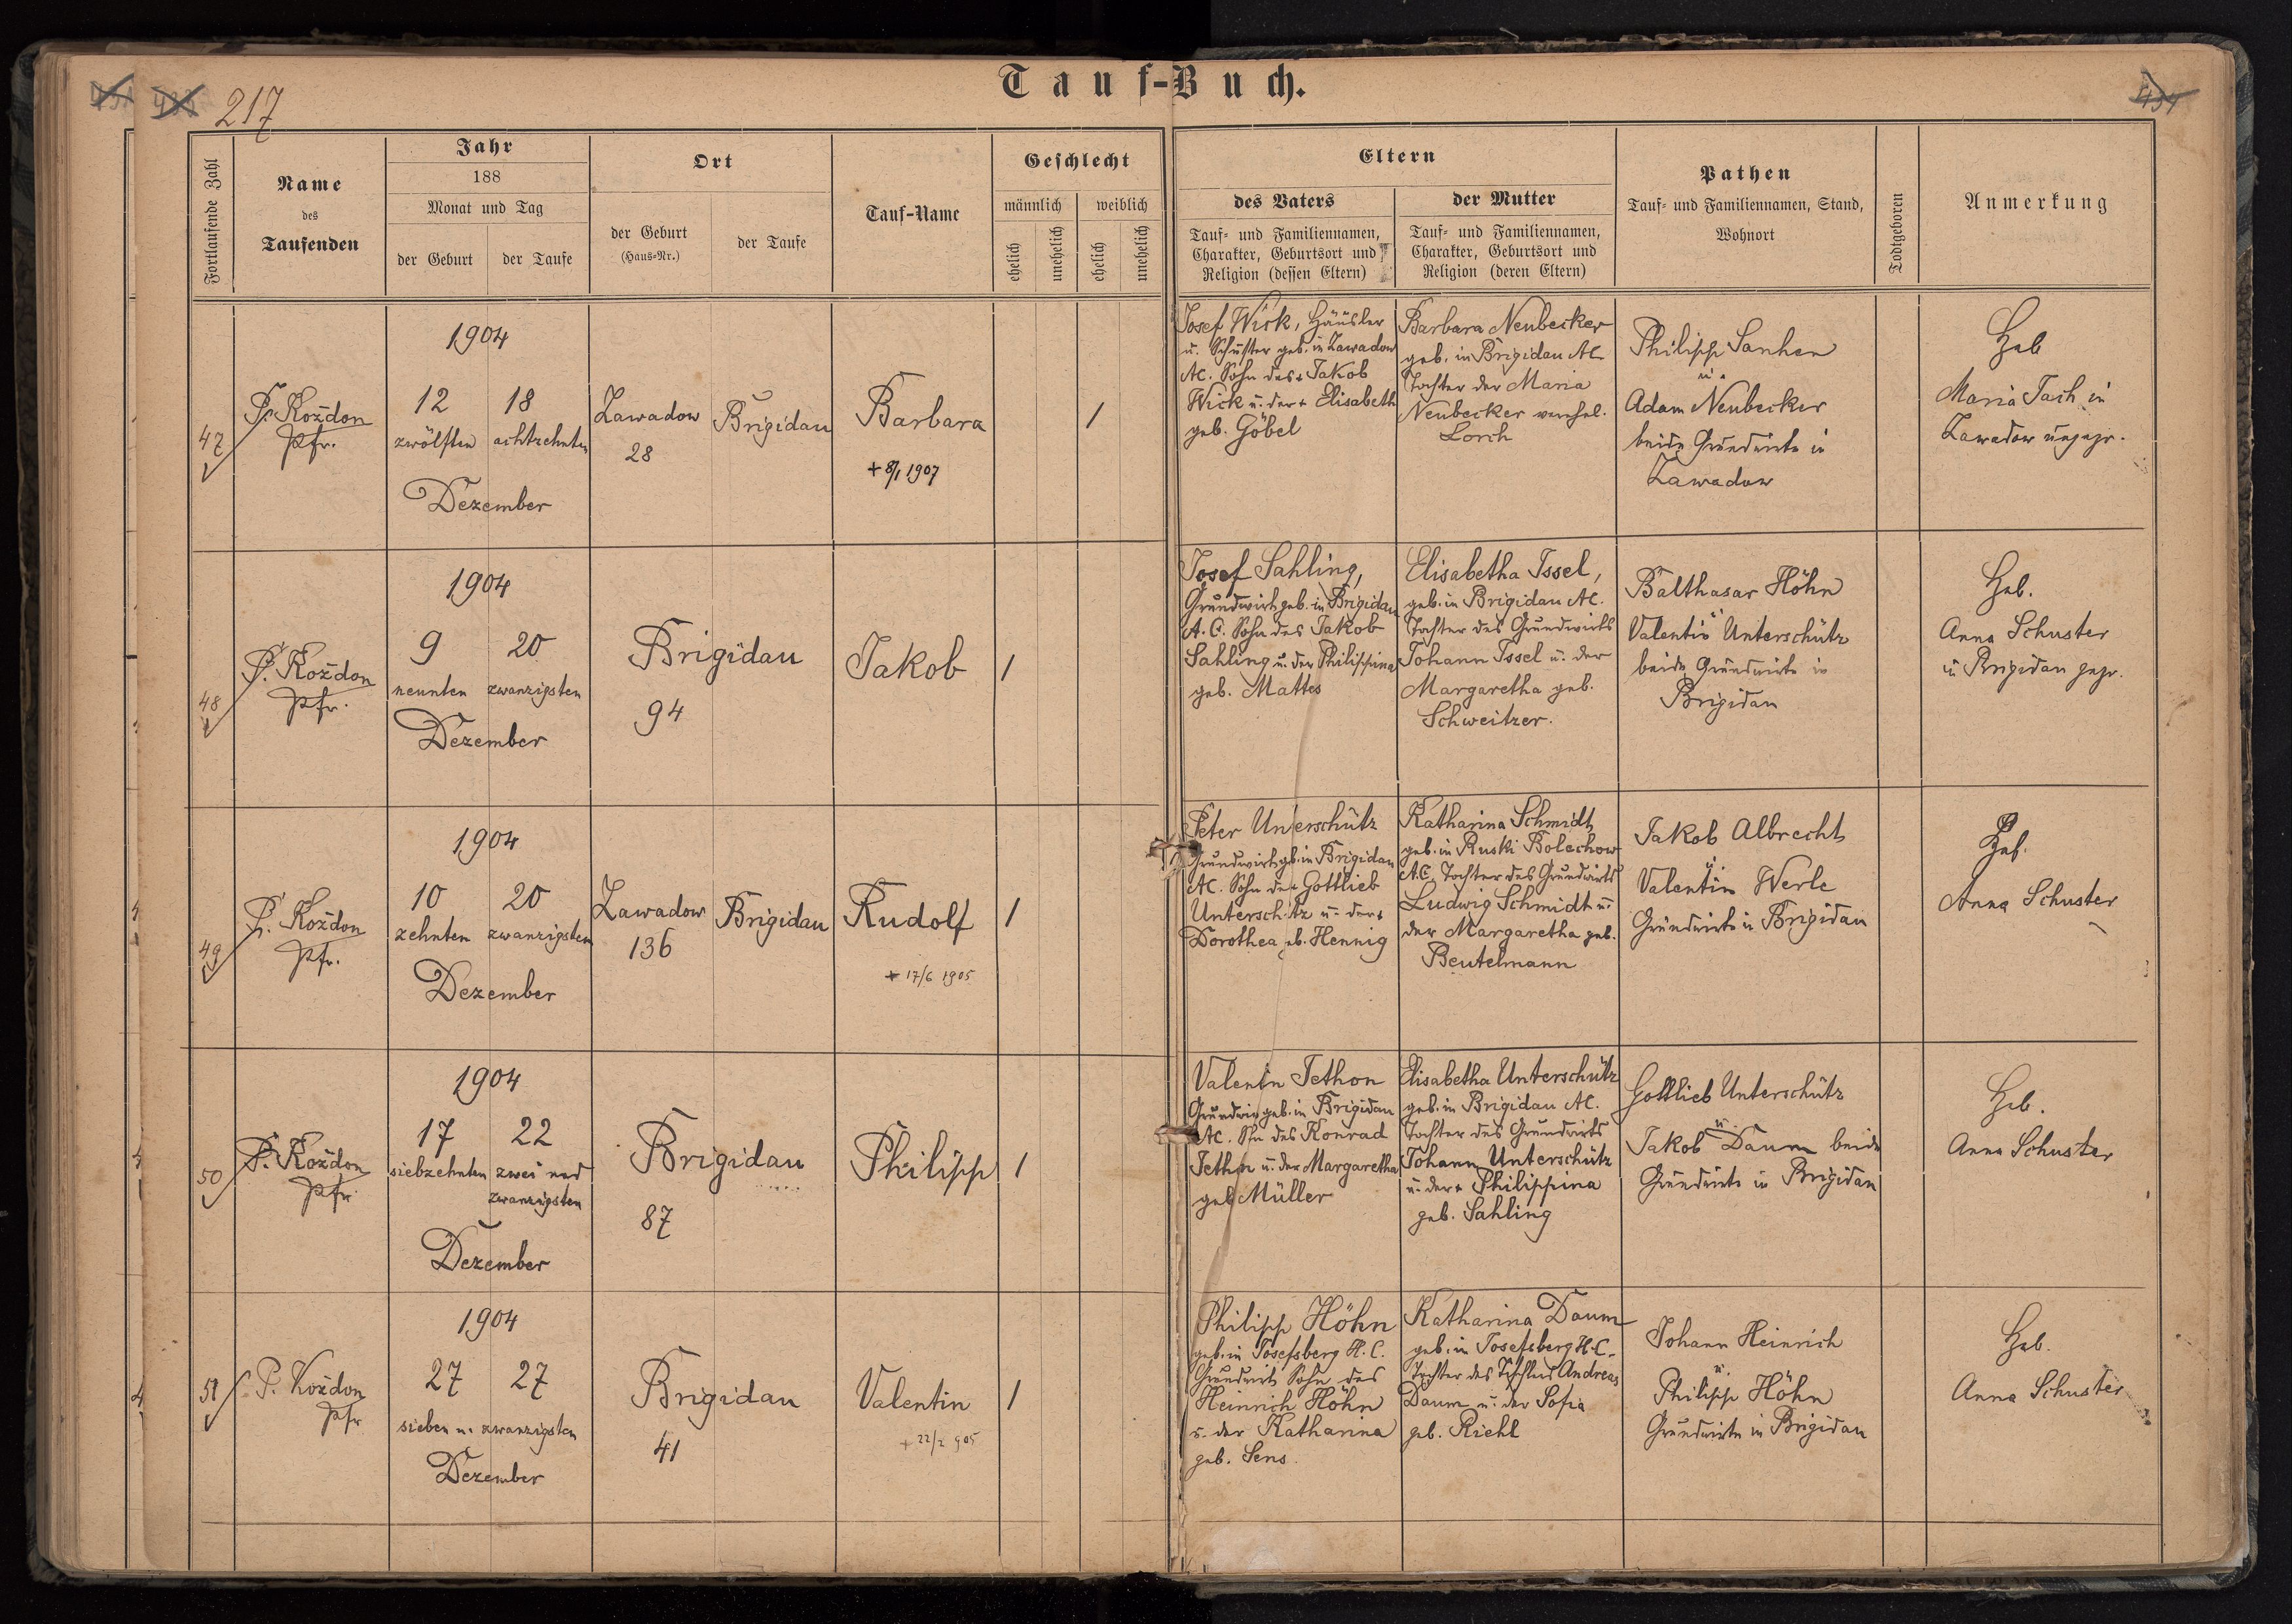 217
Tauf-Buch.
Fortlaufende Zahl
Name
des
Taufenden
Jahr
188
Monat und Tag
der Geburt
der Taufe
Ort
der Geburt
(Haus-Nr.)
der Taufe
Tauf-Name
Geschlecht
männlich
weiblich
ehelich
unehelich
ehelich
unehelich
Eltern
des Vaters
Tauf- und Familiennamen,
Charakter, Geburtsort und
Religion (dessen Eltern)
der Mutter
Tauf- und Familiennamen,
Charakter, Geburtsort und
Religion (deren Eltern)
Pathen
Tauf- und Familiennamen, Stand,
Wohnort
Todtgeboren
Anmerkung
47
P. Kożdon
Pfr.
1904
12 18
zwölften achtzehnten
Dezember
Zawadow
28
Brigidau
Barbara
+ 8/1 1907
1
Josef Wick, Häusler
u. Schuster geb. in Zawadow
AC. Sohn des + Jakob
Wick u. der + Elisabeth
geb. Göbel
Barbara Neubecker
geb. in Brigidau AC
Tochter der Maria
Neubecker verehel.
Lorch
Philipp Sanhen
u.
Adam Neubecker
beide Grundwirte in
Zawadow
Heb
Maria Tach in
Zawadow ungepr.
48
P. Kożdon
Pfr.
1904
9 20
neunten zwanzigsten
Dezember
Brigidau
94
Jakob
1
Josef Sahling,
Grundwirt geb. in Brigidau
A. C. Sohn des Jakob
Sahling u. der Philippina
geb. Mattes
Elisabetha Issel,
geb. in Brigidau AC.
Tochter des Grundwirts
Johann Issel u. der
Margaretha geb.
Schweitzer.
Balthasar Höhn
u.
Valentin Unterschütz
beide Grundwirte in
Brigidau
Heb.
Anna Schuster
in Brigidau gepr.
49
P. Kożdon
Pfr.
1904
10 20
zehnten zwanzigsten
Dezember
Zawadow
136
Brigidau
Rudolf
+ 17/6 1905
1
Peter Unterschütz
Grundwirt gb. in Brigidau
AC. Sohn des + Gottlieb
Unterschütz u. der +
Dorothea geb. Hennig
Katharina Schmidt
geb. in Ruski Bolechow
A.C. Tochter des Grundwirts
Ludwig Schmidt u.
der Margaretha geb.
Beutelmann
Jakob Albrecht
u.
Valentin Werle
Grundwirte in Brigidau
Heb.
Anna Schuster
50
P. Kożdon
Pfr.
1904
17 22
siebzehnten zwei und
zwanzigsten
Dezember
Brigidau
87
Philipp
1
Valentin Jethon
Grundwirt geb. in Brigidau
AC. Sohn des Konrad
Jethon u. der Margaretha
geb Müller
Elisabetha Unterschütz
geb. in Brigidau AC.
Tochter des Grundwirts
Johann Unterschütz
u. der + Philippina
geb. Sahling
Gottlieb Unterschütz
u.
Jakob Daum beide
Grundwirte in Brigidau
Heb.
Anna Schuster
51
P. Kożdon
Pfr
1904
27 27
sieben u. zwanzigsten
Dezember
Brigidau
41
Valentin
+ 22/2 905
1
Philipp Höhn
geb. in Josefsberg H. C.
Grundwirt Sohn des
Heinrich Höhn
u. der Katharina
geb. Sens.
Katharina Daum
geb. in Josefsberg H.C.
Tochter des Tischlers Andreas
Daum u. der Sofia
geb. Riehl
Johann Heinrich
u.
Philipp Höhn
Grundwirte in Brigidau
Heb.
Anna Schuster